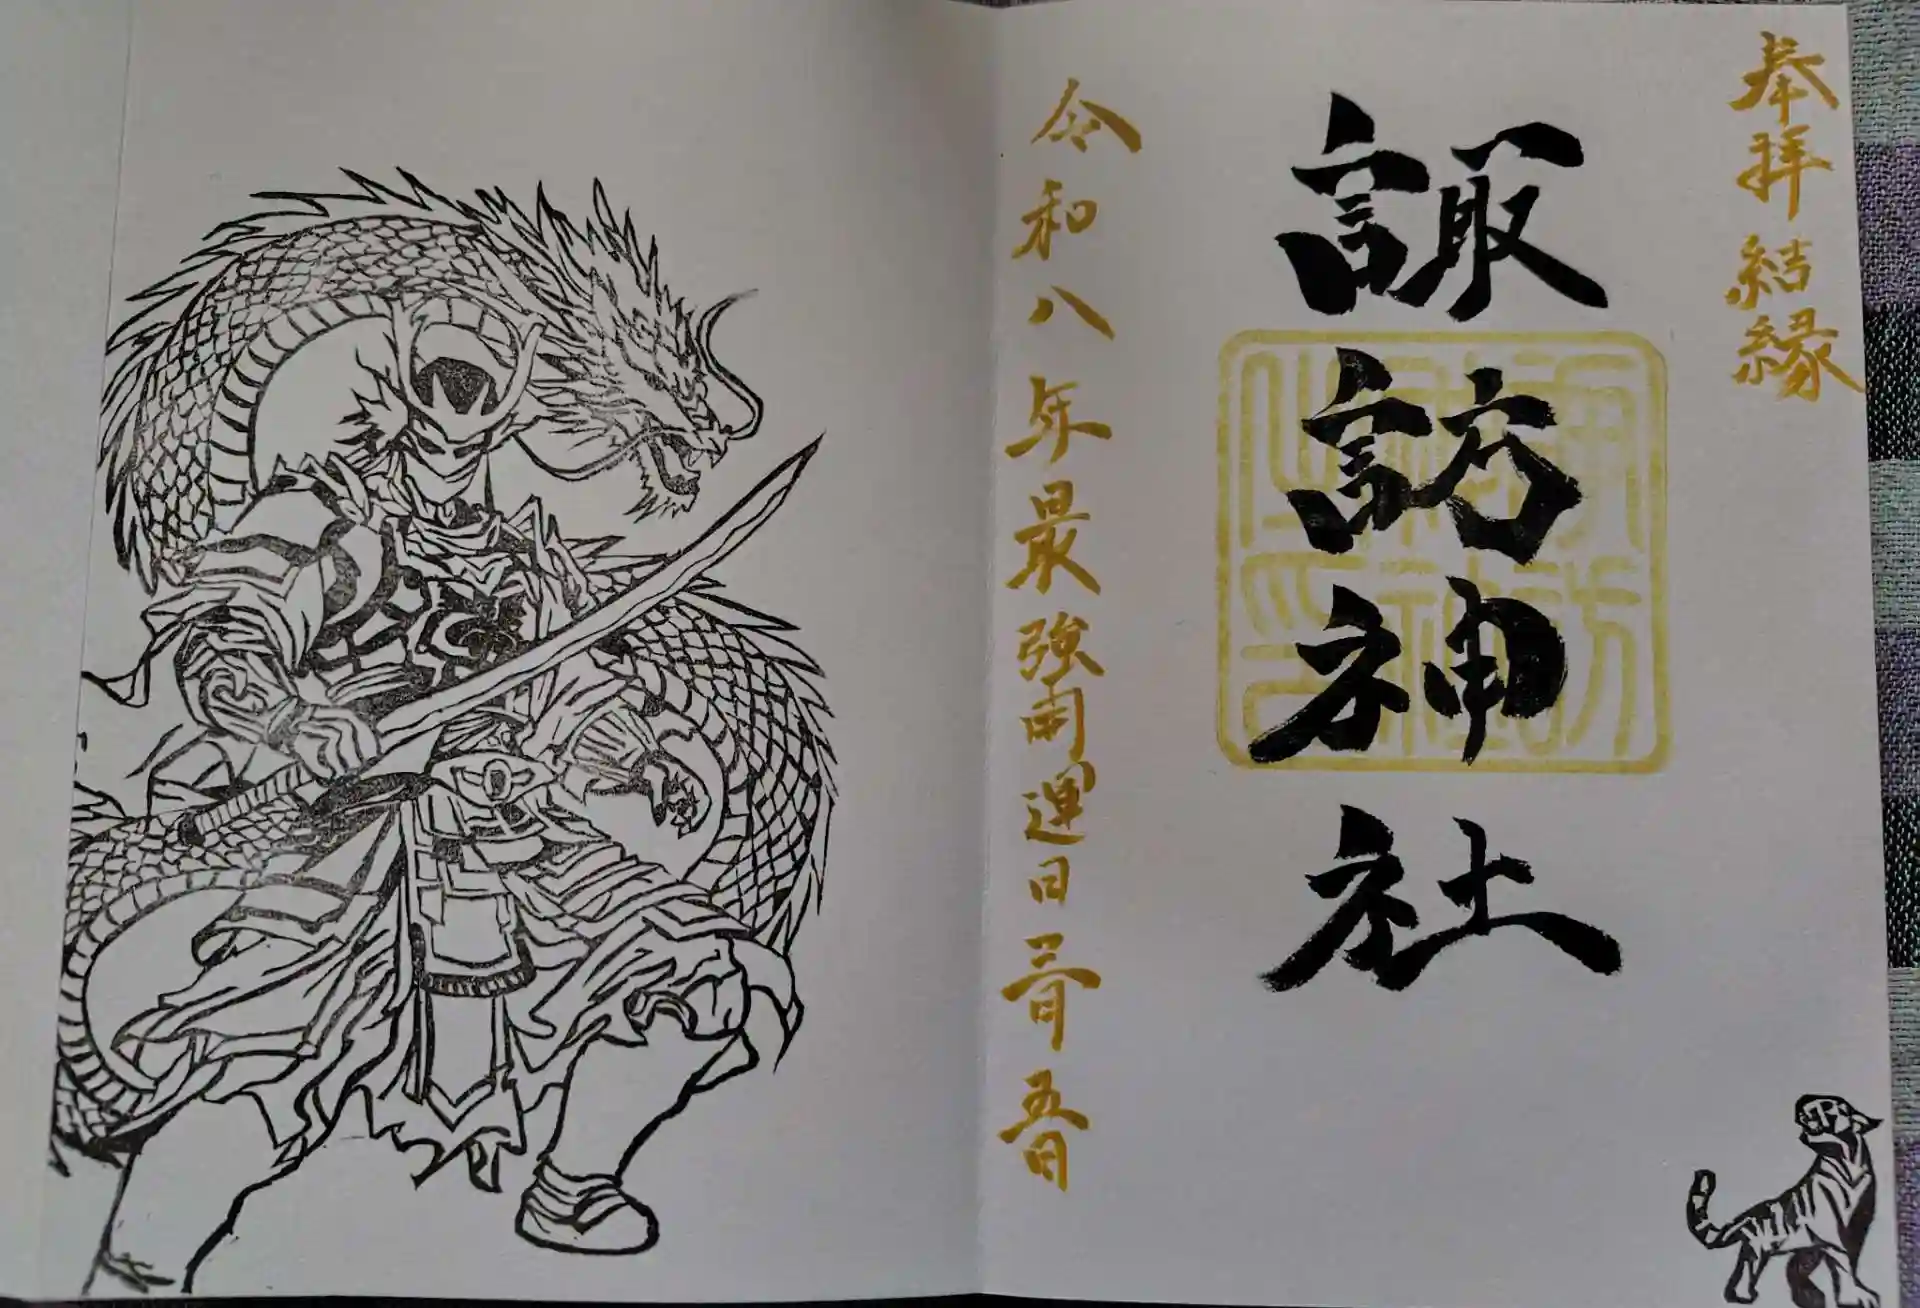 奉拝結縁
諏訪神社
令和八年最強開運日三月五日